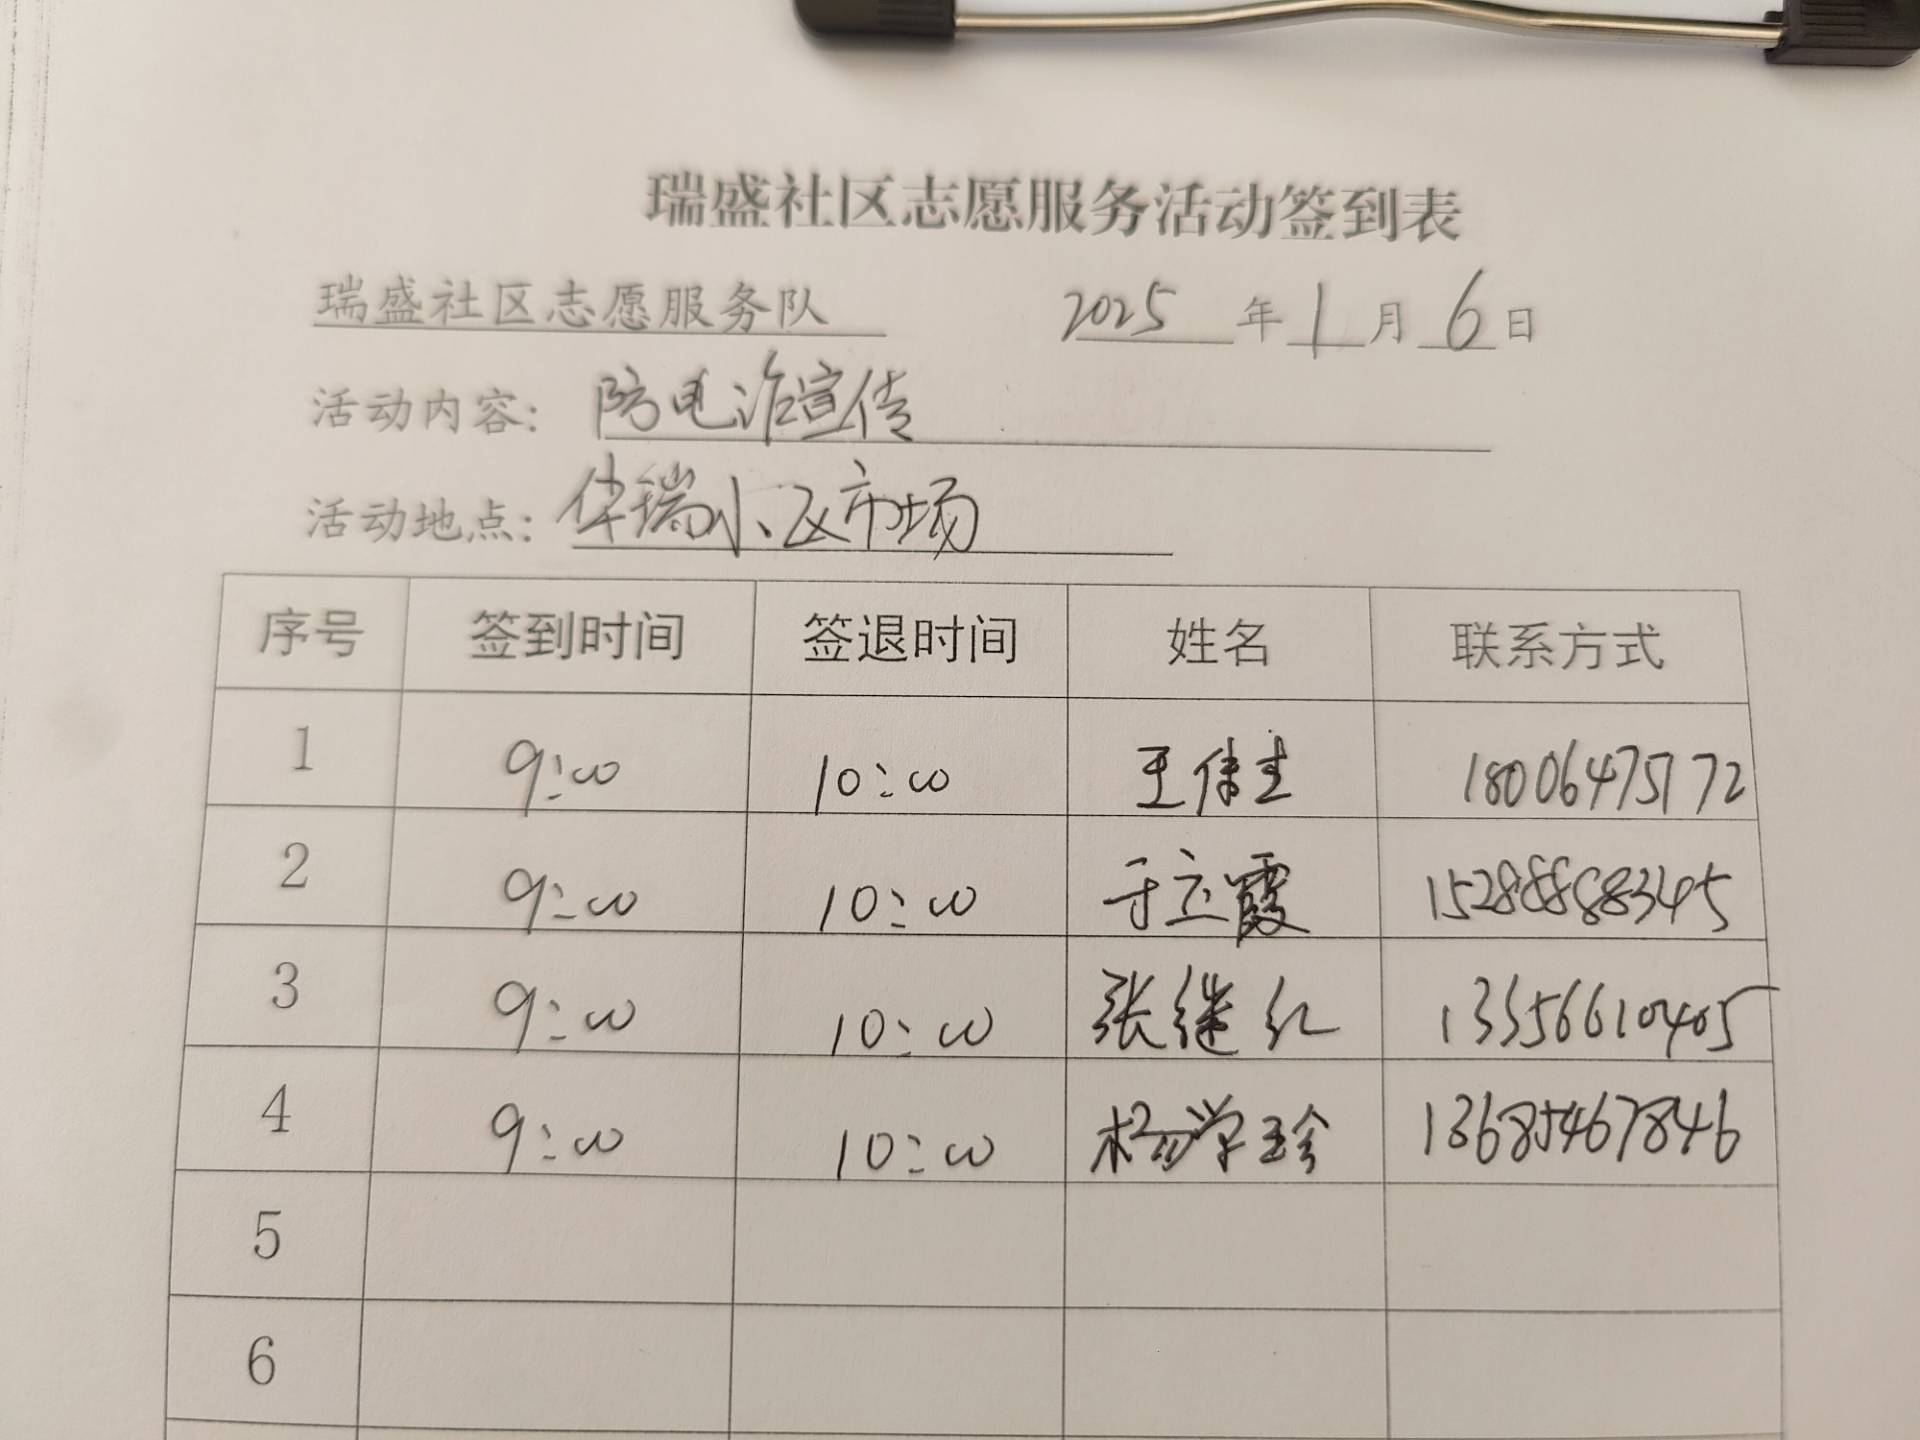 瑞盛社区志愿服务活动签到表
瑞盛社区志愿服务队 2025年1月6日
活动内容：防电诈宣传
活动地点：华瑞小区市场
序号 签到时间 签退时间 姓名 联系方式
1 9:00 10:00 王 18006475172
2 9:00 10:00 于立霞 15288883495
3 9:00 10:00 张继红 13356610405
4 9:00 10:00 杨学珍 13685467846
5
6